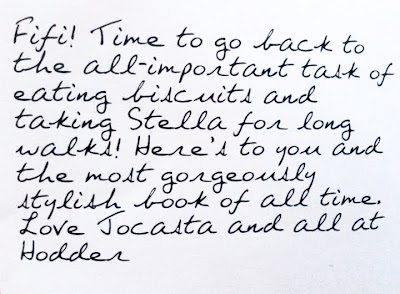 Fifi! Time to go back to
the all-important task of
eating biscuits and
taking Stella for long
walks! Here's to you and
the most gorgeously
stylish book of all time.
Love Jocasta and all at
Hodder